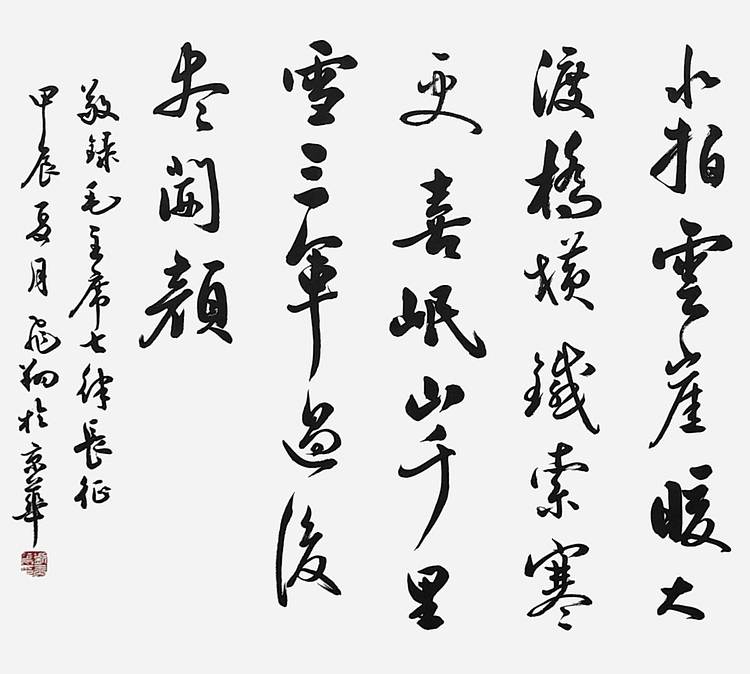 水拍雲崖暖大
渡橋橫鐵索寒
更喜岷山千里
雪三軍過後
尽開顏
敬錄毛主席七律長征
甲辰夏月飛翔於京華